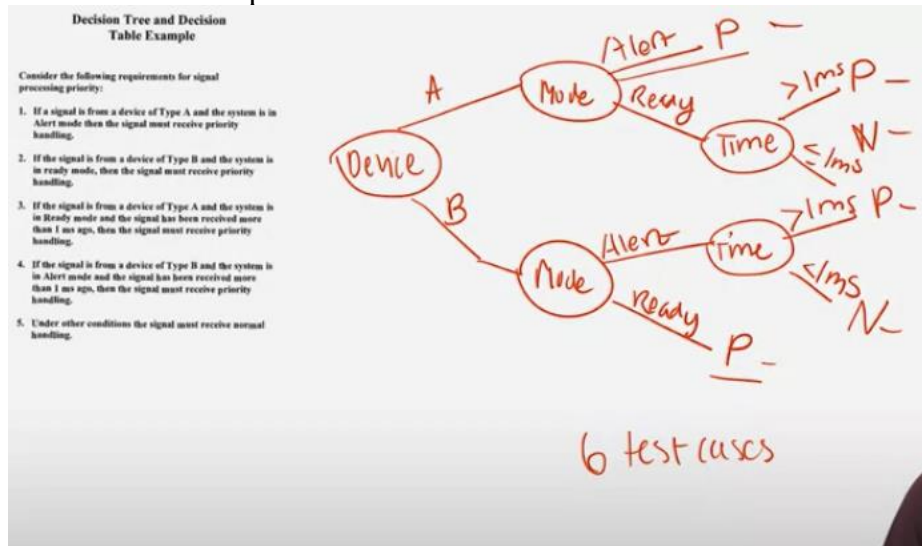 Decision Tree and Decision
Table Example
Consider the following requirements for signal
processing priority:
1. If a signal is from a device of Type A and the system is in
Alert mode then the signal must receive priority
handling.
2. If the signal is from a device of Type B and the system is
in ready mode, then the signal must receive priority
handling.
3. If the signal is from a device of Type A and the system is
in Ready mode and the signal has been received more
than 1 ms ago, then the signal must receive priority
handling.
4. If the signal is from a device of Type B and the system is
in Alert mode and the signal has been received more
than 1 ms ago, then the signal must receive priority
handling.
5. Under other conditions the signal must receive normal
handling.
Alert P –
A Mode Ready >1ms P –
Device Time ≤1ms N –
B Alert Time >1ms P –
Mode Ready ≤1ms N –
P –
6 test cases